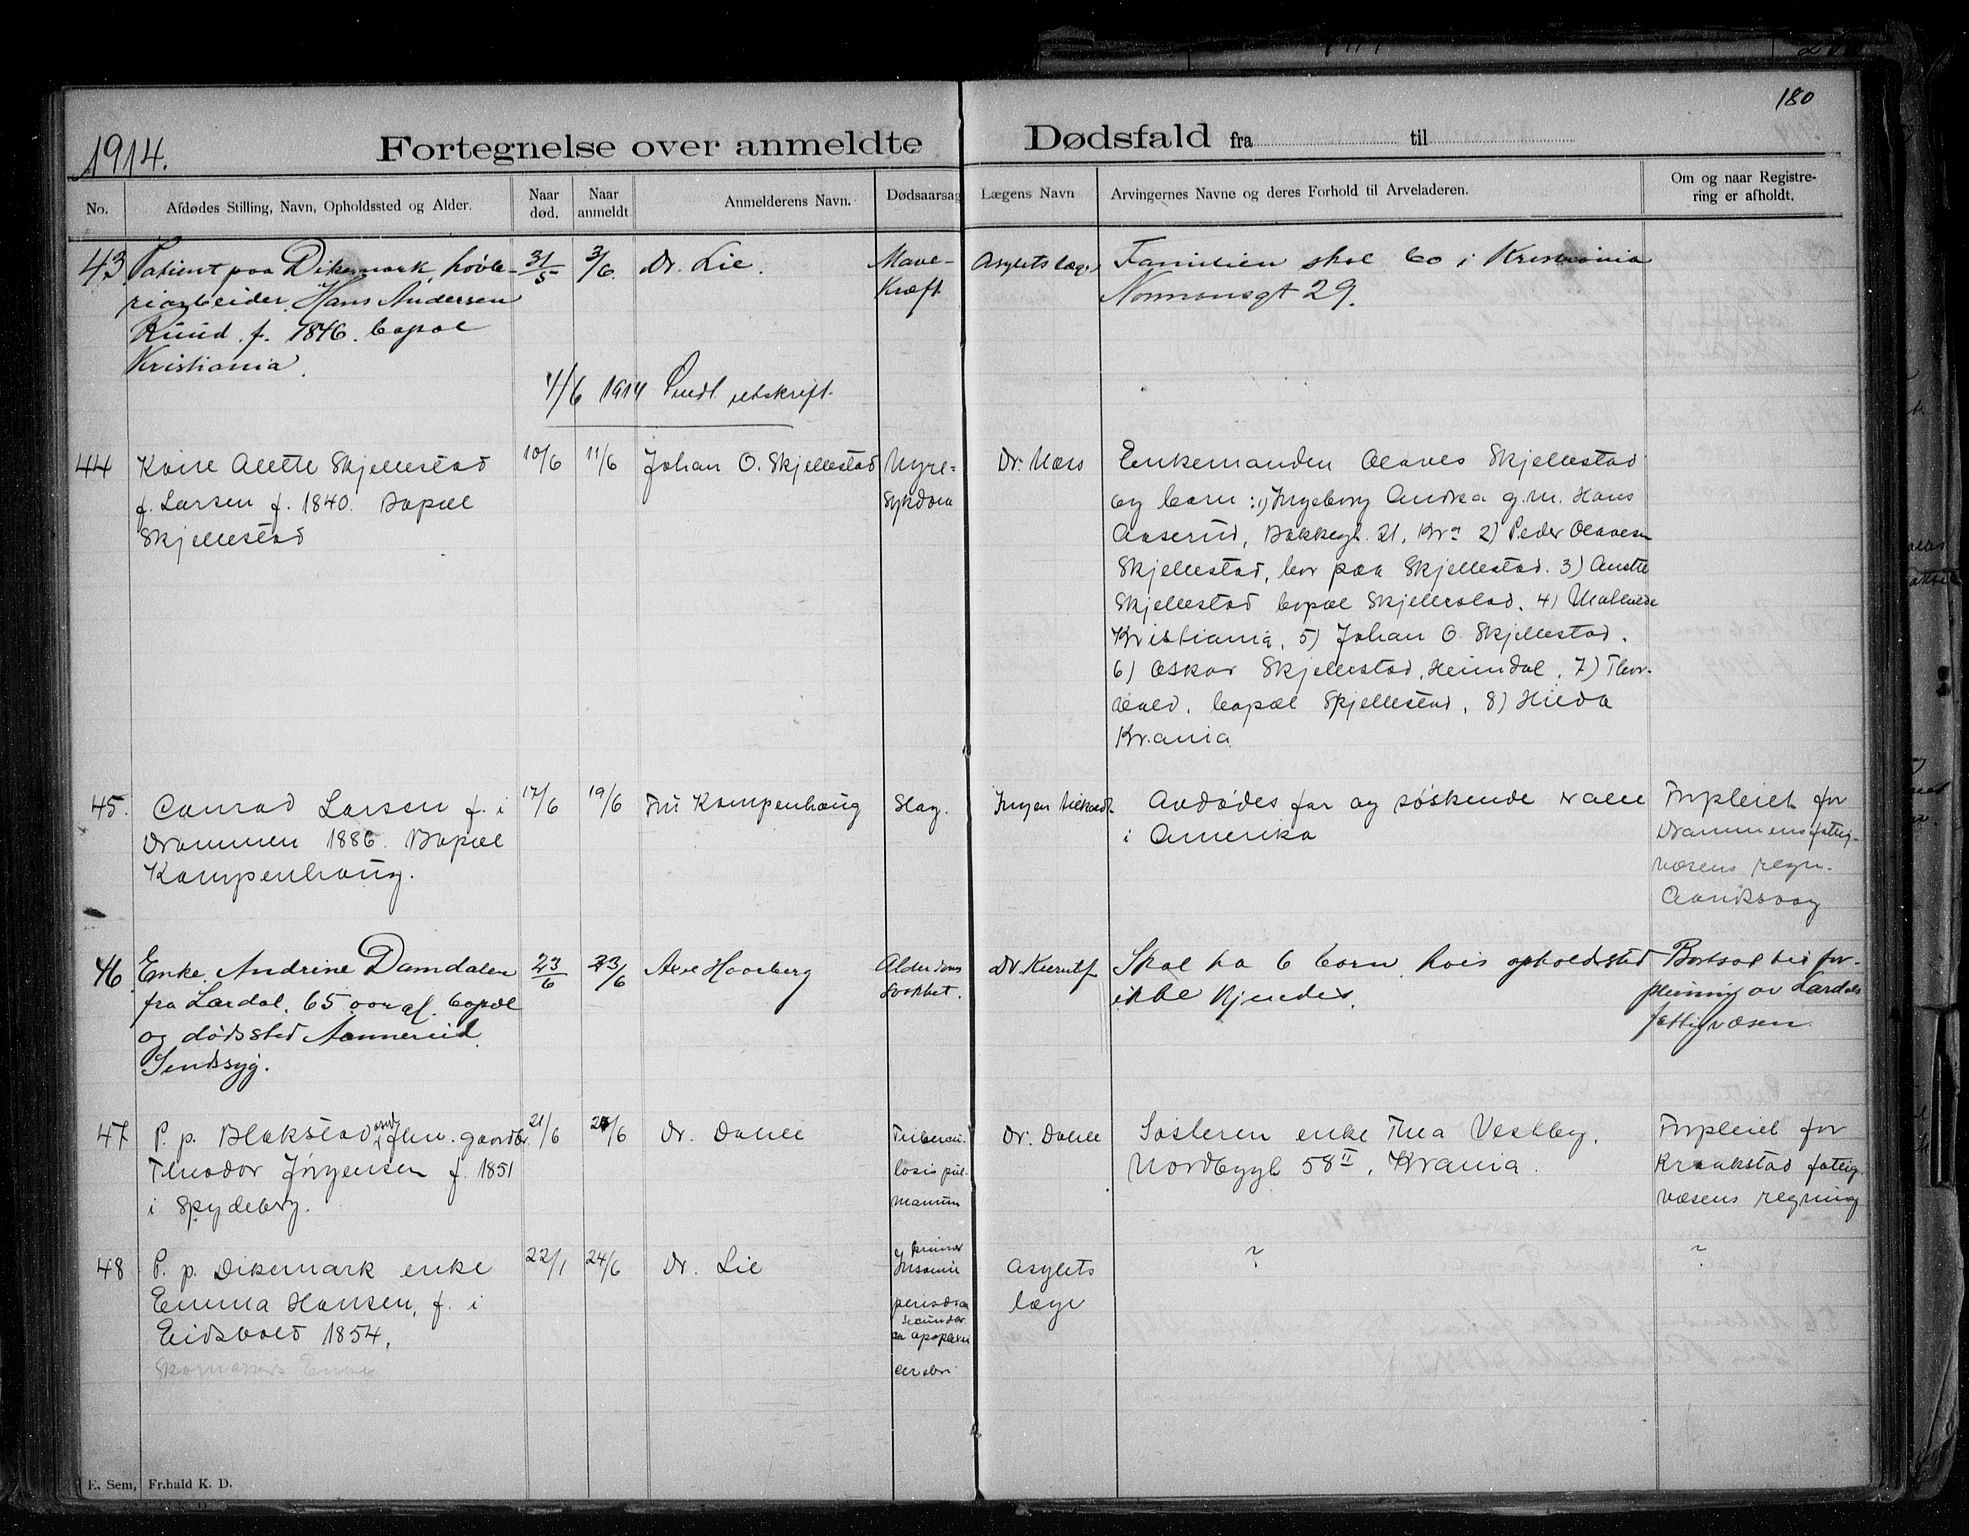 180
1914.
Fortegnelse over anmeldte Dødsfald fra til
No.
Afdødes Stilling, Navn, Opholdssted og Alder.
Naar død.
Naar anmeldt
Anmelderens Navn.
Dødsaarsag
Lægens Navn
Arvingernes Navne og deres Forhold til Arveladeren.
Om og naar Registre-
ring er afholdt.
43
Patient paa Dikemark, høvle-
riarbeider Hans Andersen
Ruud. f. 1846. bopæl
Kristiania.
31/5
3/6.
Dr. Lie.
Mave-
kræft
Asylets læge
Familien skal bo i Kristiania
Normansgt 29.
4/6 1914 Sendt utskrift.
44
Kone Alette Skjellestad
f. Larsen f. 1840. Bopæl
Skjellestad
10/6
11/6
Johan O. Skjellestad
Nyre-
sykdom
Dr. Næss
Enkemanden Olaves Skjellestad
og barn: 1) Ingeborg Andrea g.m. Hans
Aaserud, Bakkegt. 21, Kra 2) Peder Olavesen
Skjellestad, bor paa Skjellestad. 3) Anette
Skjellestad bopæl Skjellestad, 4) Mathilde
Kristiania, 5) Johan O. Skjellestad.
6) Oskar Skjellestad, Heimdal, 7) Thor-
vald, bopæl Skjellestad, 8) Hilda
Kr.ania
45.
Conrad Larsen f. i
Drammen 1886. Bopæl
Kampenhaug.
17/6
19/6
Fru Kampenhaug
Slag.
Ingen tilkaldt.
Avdødes far og søskende er alle
i Amerika
Forpleiet for
Drammens fattig-
væsens regn.
Aandssvag
46.
Enke Andrine Damdalen
fra Lardal. 65 aar gl. bopæl
og dødssted Aannerud.
Sindssyg.
23/6
23/6
Axel Haarberg
Alderdoms
svakhet.
Skal ha 6 barn, hvis opholdssted
ikke kjendes.
Bortsat til for-
pleining av Lardals
fattigvæsen.
47
P. p. Blakstad asyl, fhv. gaardbr.
Theodor Jørgensen f. 1851
i Spydeberg.
21/6
/6
Dr. Dahle
Tubercu-
losis pul-
monum
Dr. Dahle
Søsteren enke Thea Vestby,
Nordbygt 58 II, Krania.
Forpleiet for
Kraakstad fattig-
væsens regning
48
P. p. Dikemark enke
Emma Hansen, f. i
Eidsvold 1854.
22/1
24/6
Dr. Lie
secundar
apoplexi
cerebri
Asylets
læge
?
?
E. Sem, Fr.hald K. D.